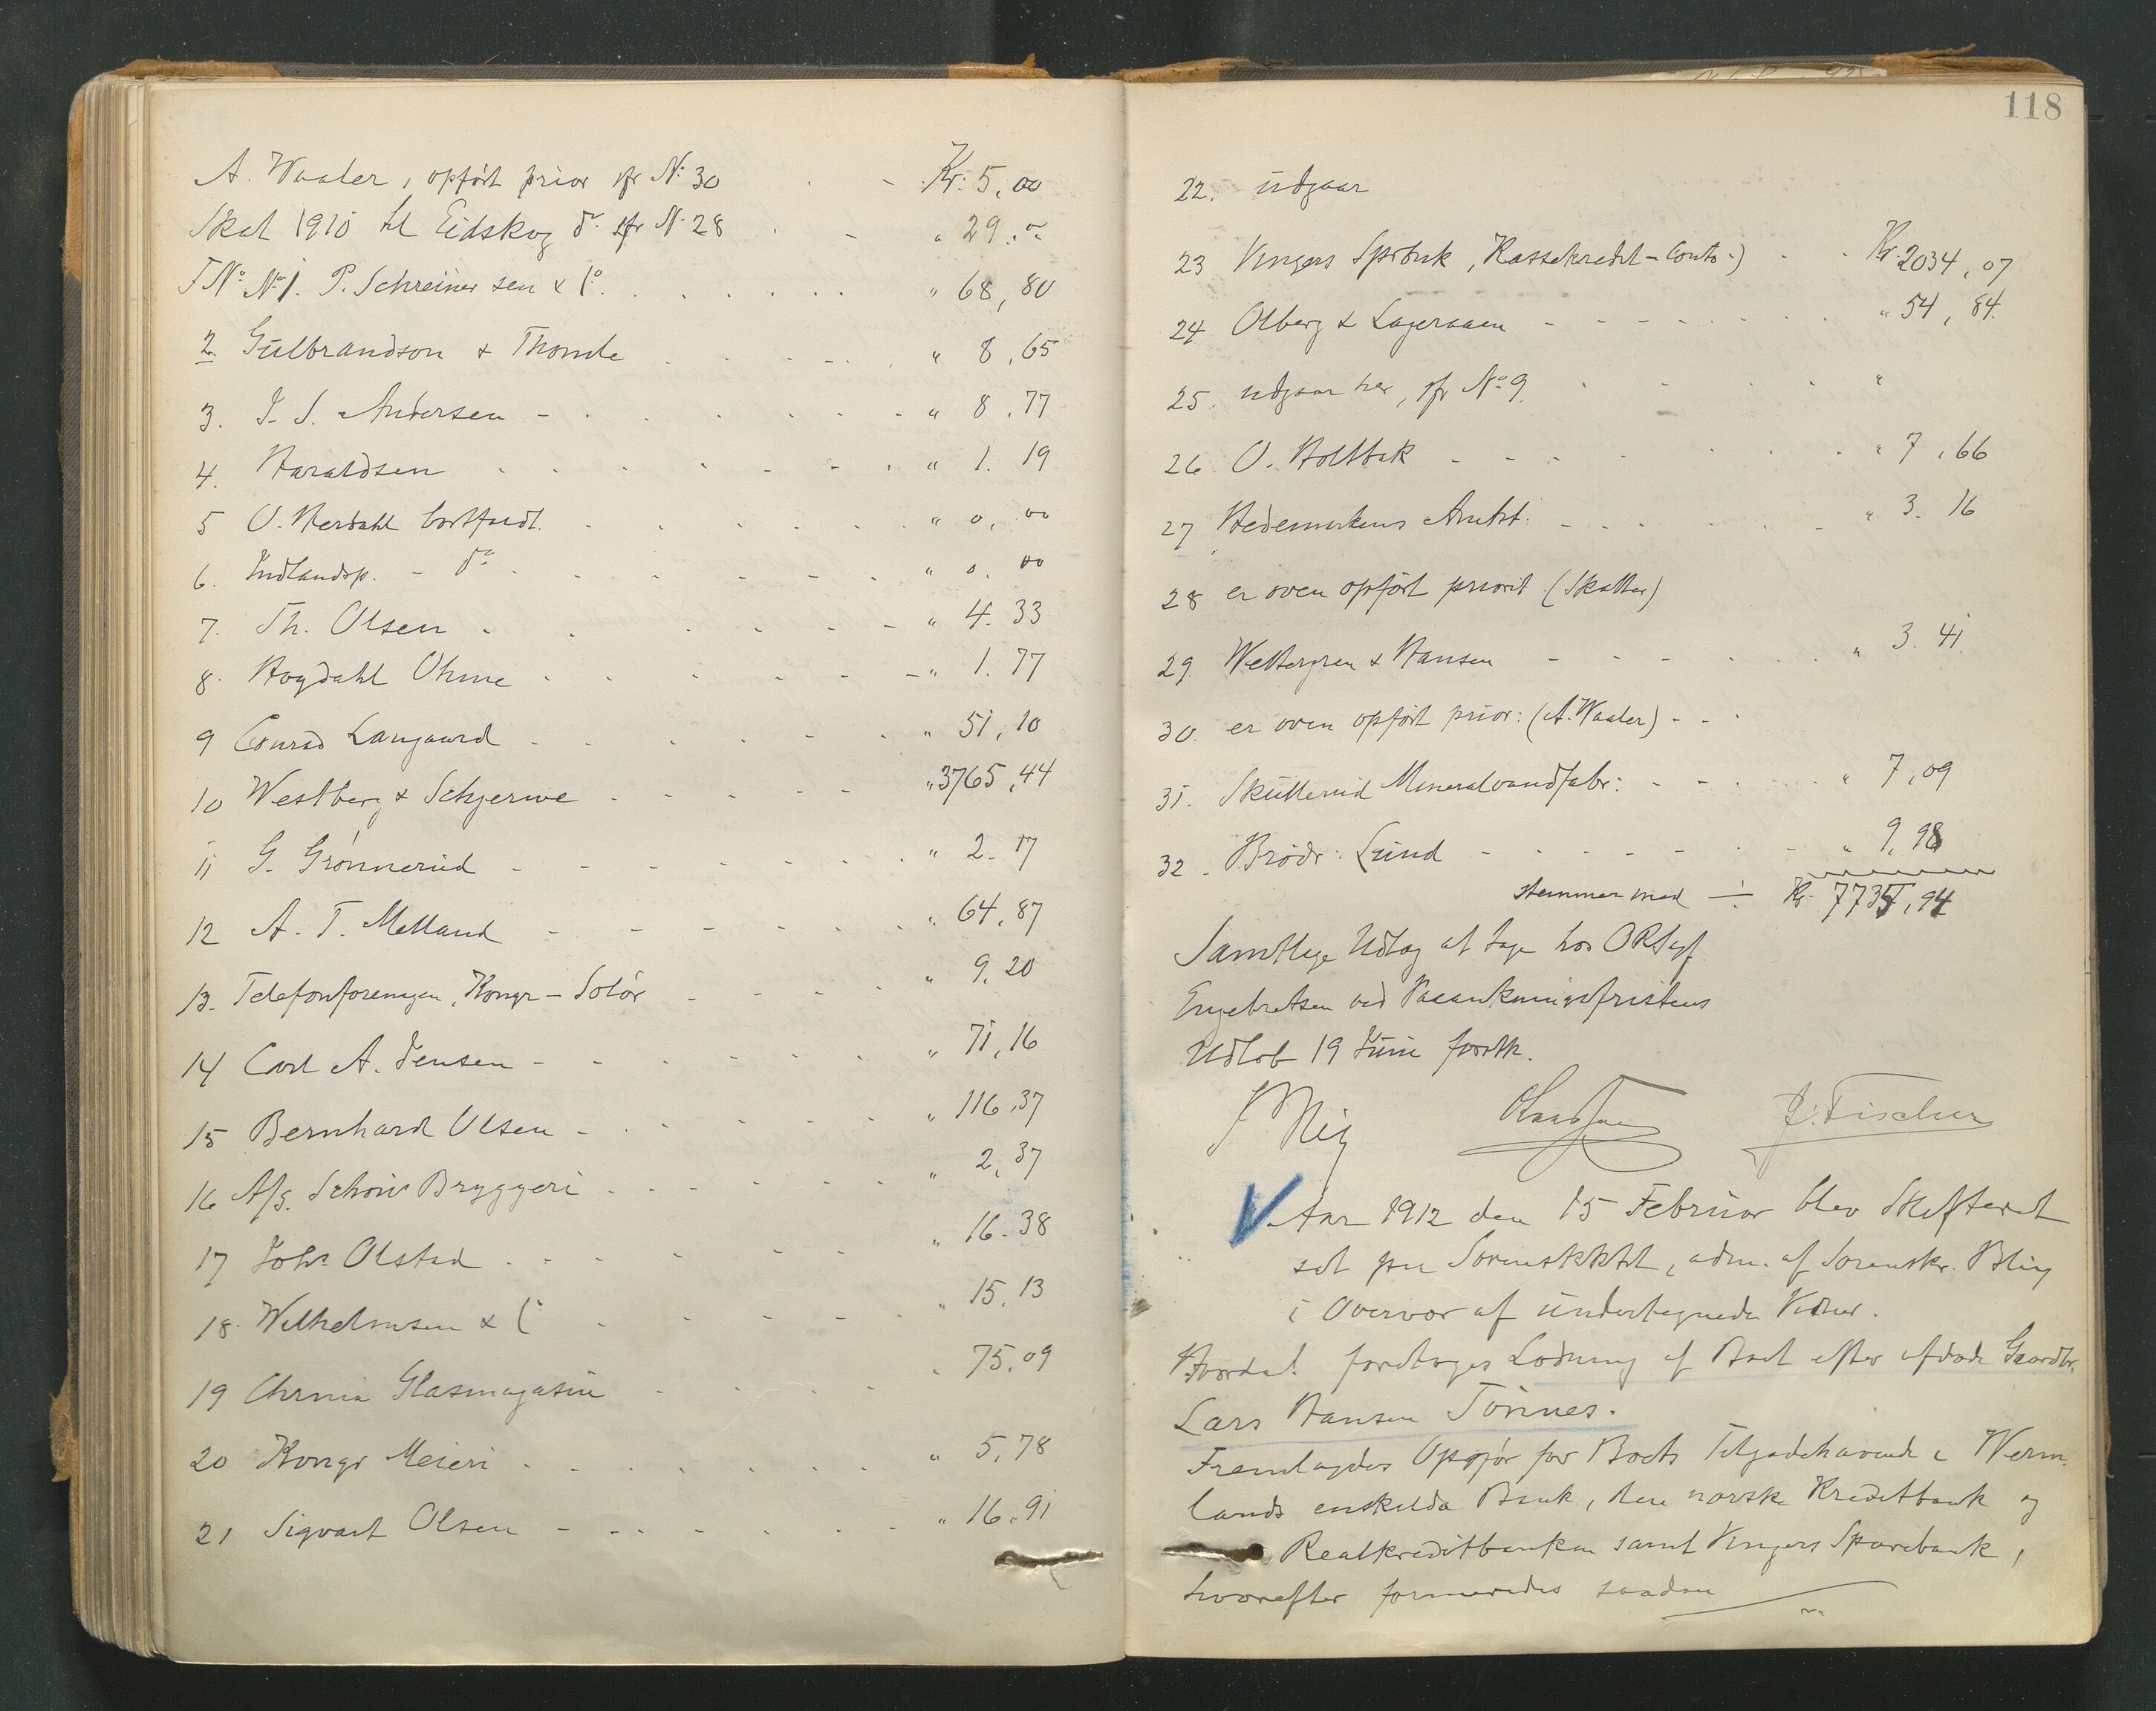 A. Waaler, opført prior cfr No 30 Kr. 5,00
Skat 1910 til Eidskog do cfr No 28 " 29.00
T No No 1. P. Schreiner sen & Co. " 68,80
2. Gulbrandson & Thomle " 8,65
3. I. S. Andersen " 8.77
4. Haraldsen " 1.19
5 O. Nerdahl bortfaldt. " 0,00
6. Indlandsp. - do " 0.00
7. Th. Olsen " 4.33
8. Høgdahl Ohme " 1.77
9 Conrad Langaard " 51,10
10 Westberg & Schjerwe " 3765,44
11 G. Grønnerud " 2.17
12 A. T. Melland " 64,87
13. Telefonforeningen, Kongv - Solør " 9,20
14 Carl A. Jensen " 71,16
15 Bernhard Olsen " 116,37
16 A/s. Schous Bryggeri " 2,37
17 Johs Olstad " 16.38
18. Wilhelmsen & Co " 15.13
19 Chrnia Glasmagasin " 75.09
20 Kongv Meieri " 5,78
21 Sigvart Olsen " 16.91
118
22. udgaar
23 Vingers Sprbnk, (Kassekredit-Conto.) Kr. 2034,07
24 Olberg & Lageraaen " 54,84.
25. udgaar her, cfr No 9. "
26 O. Holtbek " 7,66
27 Hedemarkens Amtst. " 3.16
28 er oven opført priorit (Skatter)
29. Wettergren & Hansen " 3.41.
30. er oven opført prior: (A. Waaler)
31. Skullerud Mineralvandfabr: " 7,09
32. Brødr: Lund " 9,98
stemmer med ÷ Kr. 7735,94
Samtlige Udlog at tage hos ORSagf
Engebretsen ved Paaankningsfristens
Udløb 19 Juni førstk.
J. Fischer
Aar 1912 den 15 Februar blev Skifteret
sat paa Sorenskktrt, adm. af Sorenskr. Blix
i Overvær af undertegnede Vidner.
Hvorda! foretoges Lodning af Boet efter afdøde Gaardbr.
Lars Hansen Tønnes.
Fremlagdes Opgjør for Boets Tilgodehavende i Werm-
lands enskilda Bank, den norske Kreditbank og
Realkreditbanken samt Vingers Sparebank,
hvorefter formeredes saadan